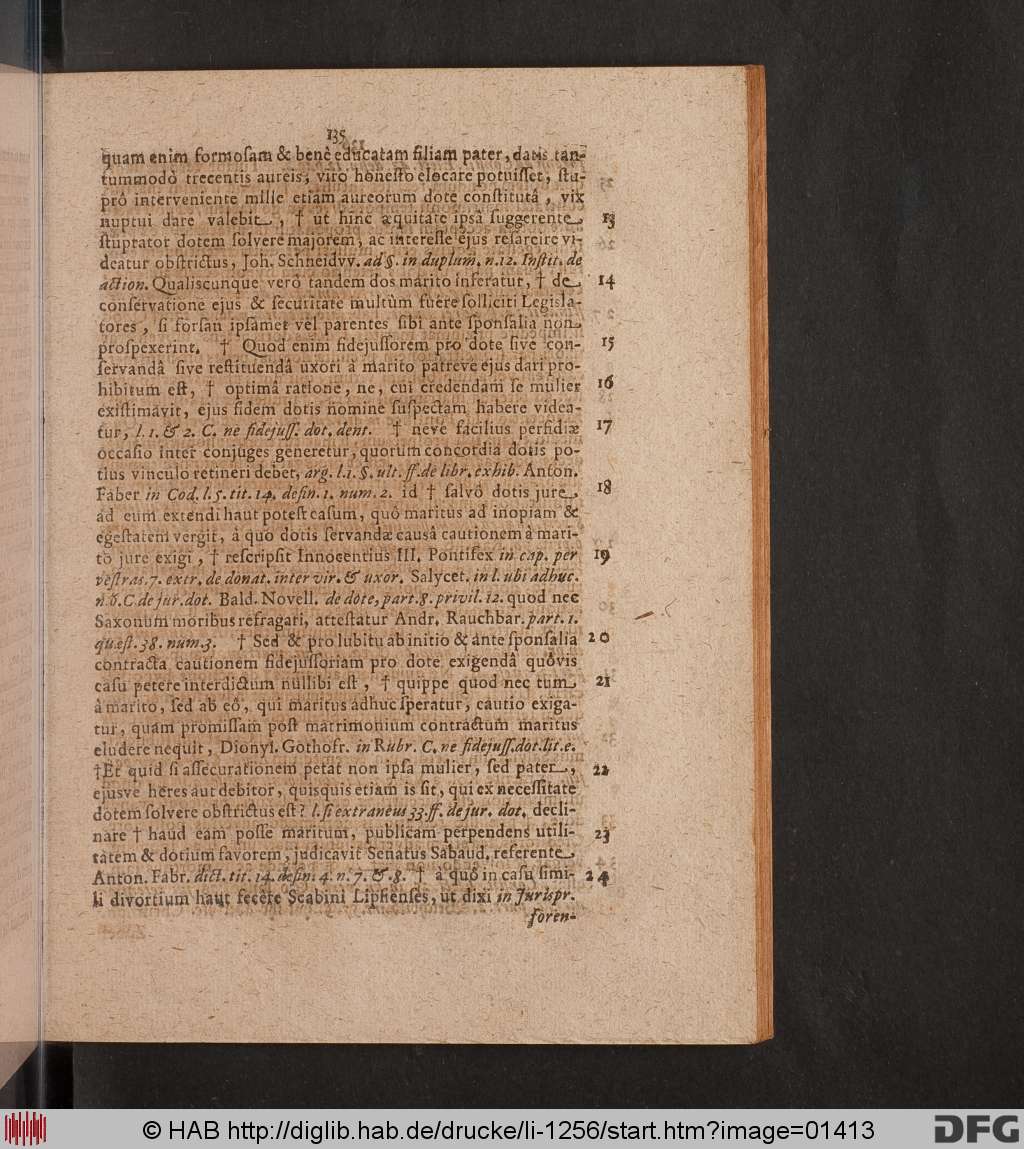 135
quam enim formoſam & benè educatam filiam pater, datis tan-
tummodò trecentis aureis, viro honeſto elocare potuiſſet, ſtu-
prô interveniente mille etiam aureorum dote conſtitutâ, vix
nuptui dare valebit, † ut hinc æquitate ipsâ ſuggerente 13
ſtuprator dotem ſolvere majorem, ac intereſſe ejus reſarcire vi-
deatur obſtrictus, Joh. Schneidvv. ad §. in duplum. n.12. Inſtit. de
action. Qualiscunque verò tandem dos marito inferatur, † de 14
conſervatione ejus & ſecuritate multùm fuêre ſolliciti Legisla-
tores, ſi forſan ipſamet vel parentes ſibi ante ſponſalia non
proſpexerint. † Quod enim fidejuſſorem pro dote ſive con- 15
ſervandâ ſive reſtituendâ uxori à marito patreve ejus dari pro-
hibitum eſt, † optimâ ratione, ne, cui credendam ſe mulier 16
exiſtimavit, ejus fidem dotis nomine ſuſpectam habere videa-
tur, l. 1. & 2. C. ne fidejuſſ. dot. dent. † neve facilius perfidiæ 17
occaſio inter conjuges generetur, quorum concordia dotis po-
tius vinculo retineri debet, arg. l.1. §. ult. ff. de libr. exhib. Anton.
Faber in Cod. l. 5. tit. 14. defin. 1. num. 2. id † ſalvô dotis jure 18
ad eum extendi haut poteſt caſum, quô maritus ad inopiam &
egeſtatem vergit, â quo dotis ſervandæ causâ cautionem à mari-
to jure exigi, † reſcripſit Innocentius III. Pontifex in cap. per 19
veſtras. 7. extr. de donat. inter vir. & uxor. Salycet. in l. ubi adhuc.
n. 6. C de jur. dot. Bald. Novell. de dote, part. 8. privil. 12. quod nec
Saxonum moribus refragari, atteſtatur Andr. Rauchbar. part. 1.
quæſt. 38. num. 3. † Sed & pro lubitu ab initio & ante ſponſalia 20
contracta cautionem fidejuſſoriam pro dote exigendâ quôvis
caſu petere interdictum nullibi eſt, † quippe quod nec tum 21
â marito, ſed ab eô, qui maritus adhuc ſperatur, cautio exiga-
tur, quam promiſſam poſt matrimonium contractum maritus
eludere nequit, Dionyſ. Gothofr. in Rubr. C. ne fidejuſſ. dot. lit. e.
† Et quid ſi aſſecurationem petat non ipſa mulier, ſed pater, 22
ejusve heres aut debitor, quisquis etiam is ſit, qui ex neceſſitate
dotem ſolvere obſtrictus eſt? l. ſi extraneus 33. ff. de jur. dot. decli-
nare † haud eam poſſe maritum, publicam perpendens utili- 23
tatem & dotium favorem, judicavit Senatus Sabaud. referente
Anton. Fabr. dict. tit. 14. defin. 4. n. 7. & 8. † â quô in caſu ſimi- 24
li divortium haut fecêre Scabini Lipſienſes, ut dixi in Jurispr.
foren-
© HAB http://diglib.hab.de/drucke/li-1256/start.htm?image=01413
DFG